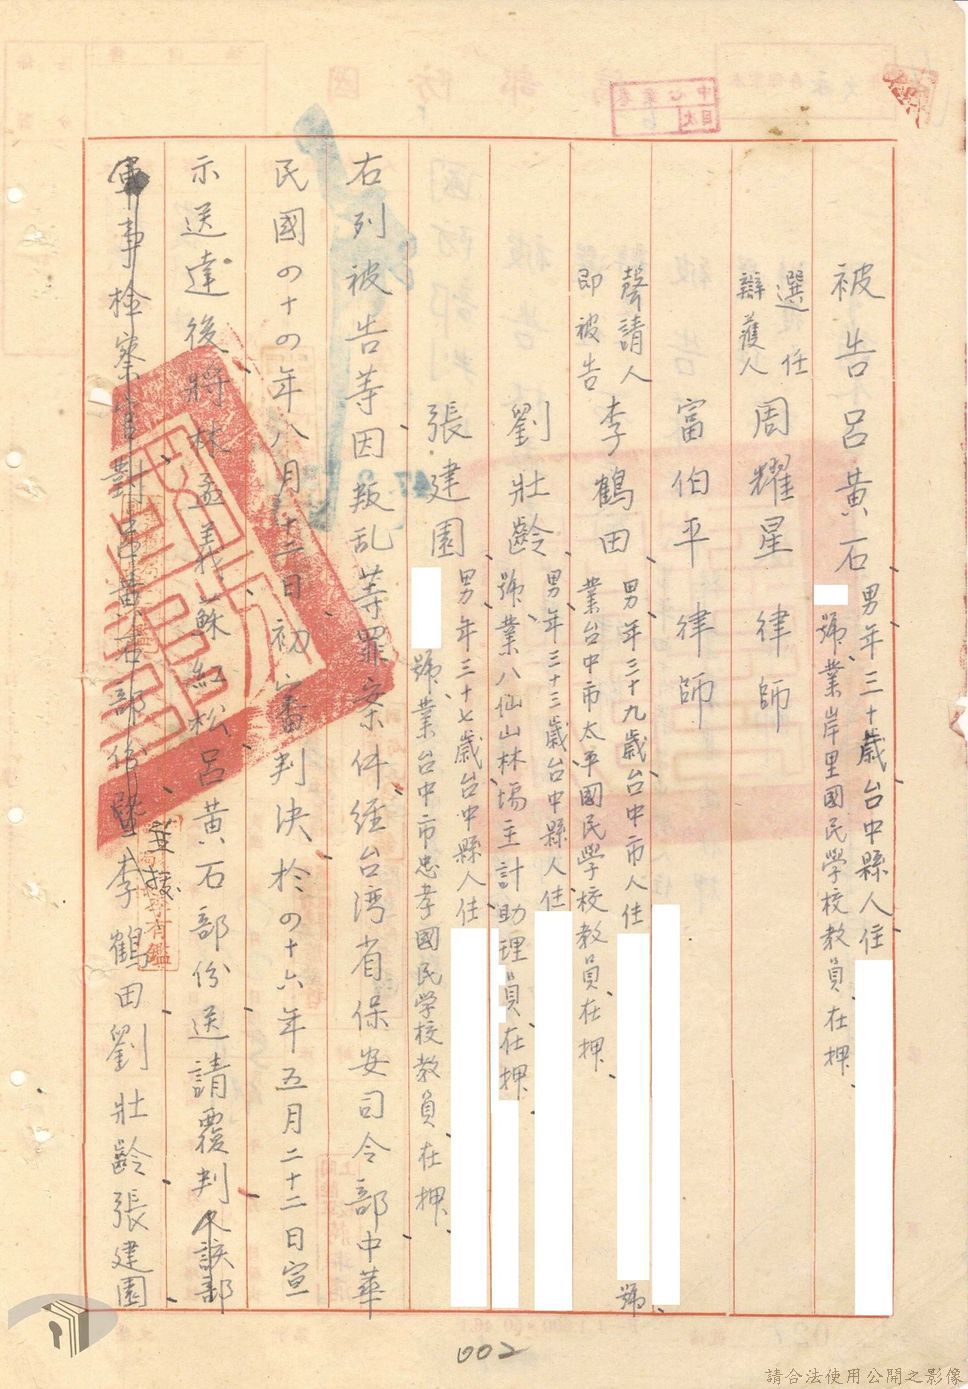 被告呂黃石男年三十歲台中縣人住
號業岸里國民學校教員在押
選任
辯護人
周耀星律師
富伯平律師
聲請人
即被告
李鶴田男年三十九歲台中市人住
號
業台中市太平國民學校教員在押
劉壯齡男年三十三歲台中縣人住
號業八仙山林場主計助理員在押
張建園男年三十七歲台中縣人住
號業台中市忠孝國民學校教員在押
右列被告等因叛乱等罪案件經台湾省保安司令部中華
民國四十四年八月十二日初審判決於四十六年五月二十二日宣
示送達後將林孟義、蘇紅松呂黃石部份送請覆判
軍事檢察官對呂黃石部份暨李鶴田劉壯齡張建園
並據
002
請合法使用公開之影像